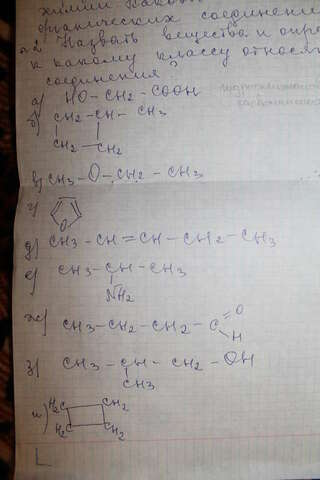 химии
органических соединений
2. Назвать вещества и опре
к какому классу относят
соединения?
а) HO-CH2-COOH
б) CH2-CH-CH3
CH2-CH2
в) CH3-O-CH2-CH3
г) O
д) CH3-CH=CH-CH2-CH3
е) CH3-CH-CH3
NH2
ж) CH3-CH2-CH2-C=O
H
з) CH3-CH-CH2-OH
CH3
и) H2C CH2
H2C CH2